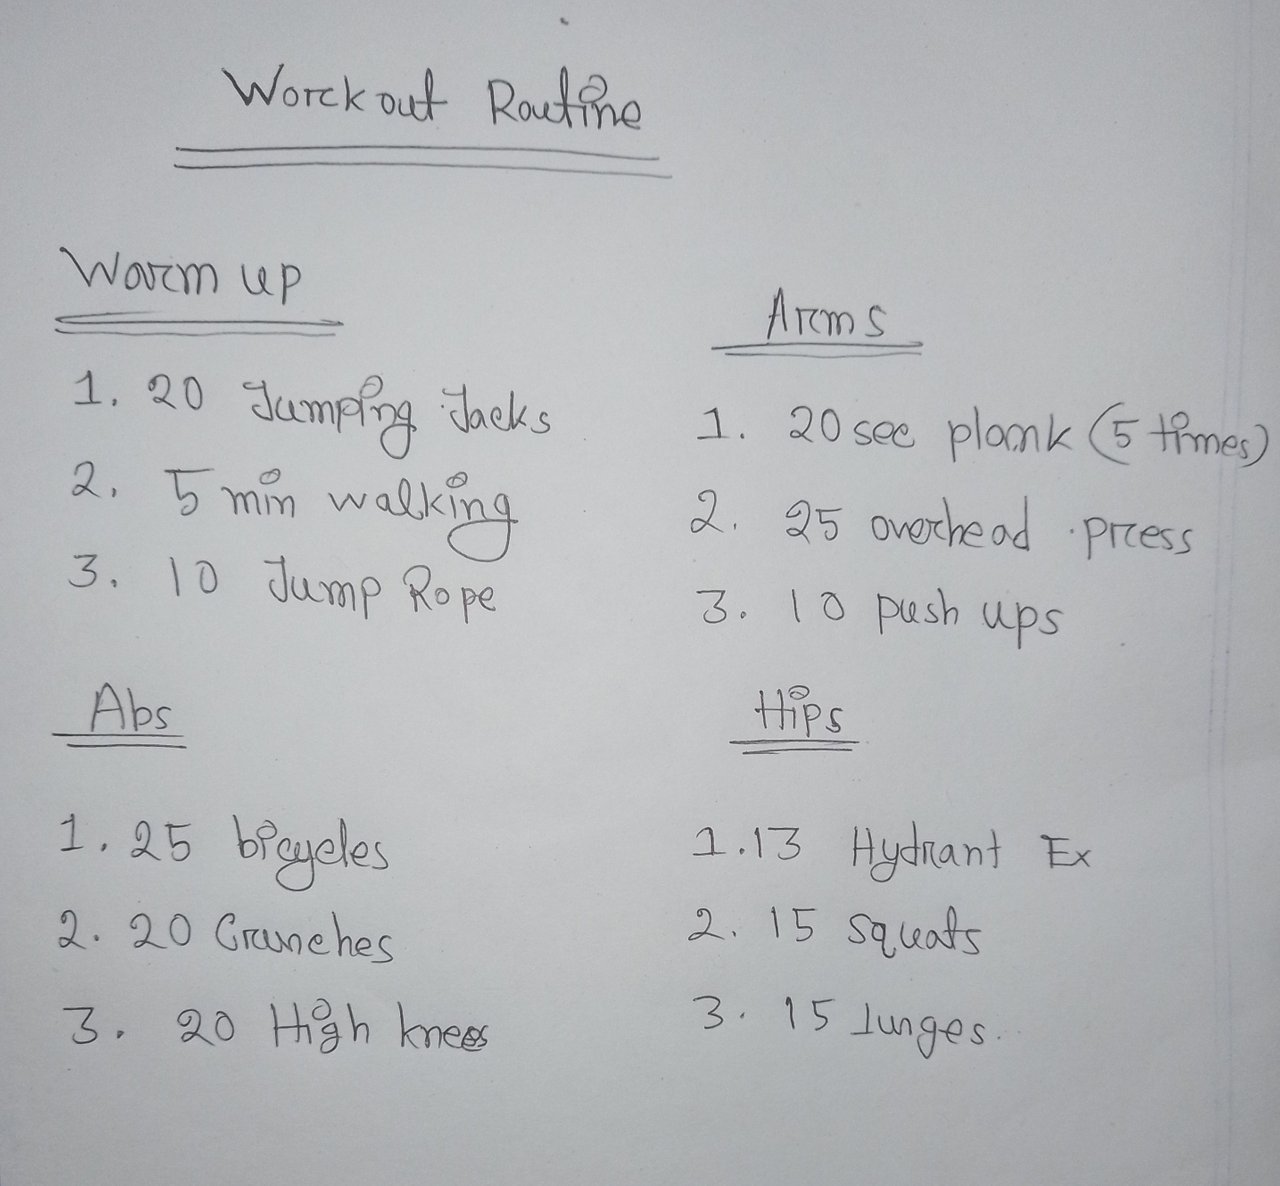 Workout Routine
Warm up
1. 20 Jumping Jacks
2. 5 min walking
3. 10 Jump Rope
Arms
1. 20 sec plank (5 times)
2. 25 overhead press
3. 10 push ups
Abs
1. 25 bicycles
2. 20 Crunches
3. 20 High knees
Hips
1. 13 Hydrant Ex
2. 15 squats
3. 15 lunges.